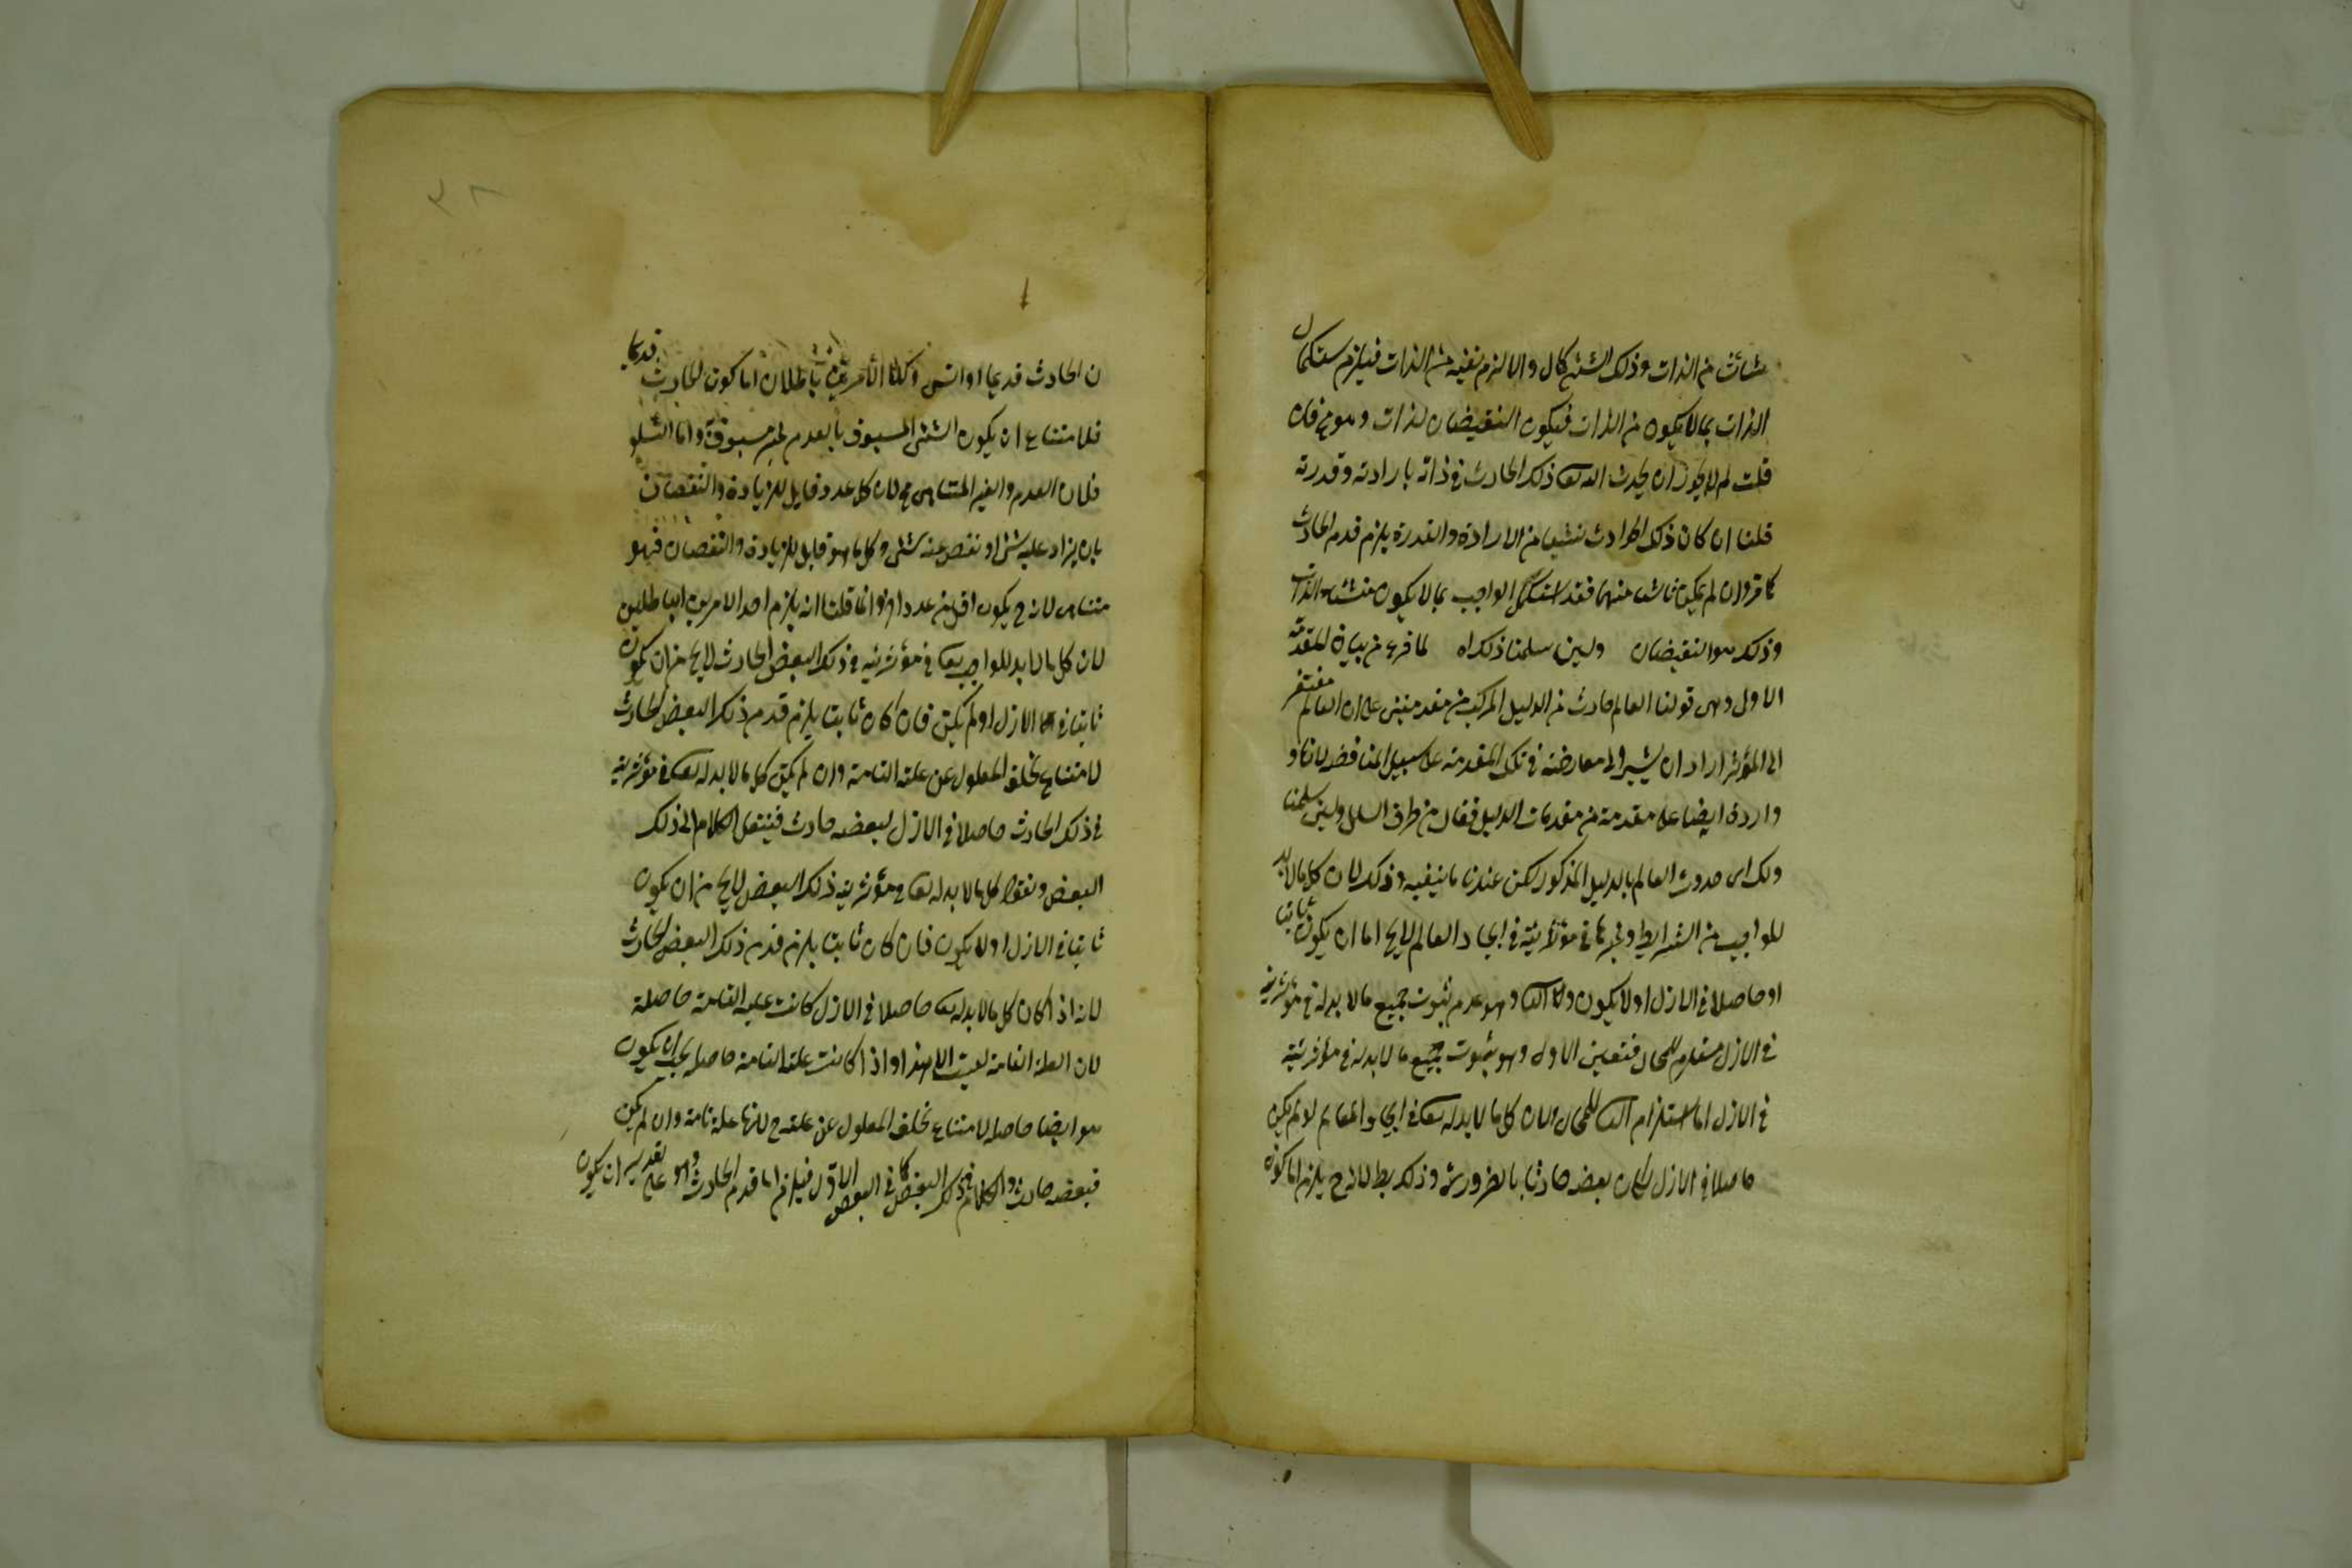 من الذات وذلك الشئ كمال والا لزم نفيه من الذات فيلزم استكمال
الذات بما لا يكون من الذات فيكون النقيضان لذات وهو مح فان
قلت لم لا يجوز ان يحدث الله تعا ذلك الحادث في ذاته بارادته وقدرته
قلنا ان كان ذلك الحادث من الارادة والقدرة يلزم قدم الحادث
كما مر وان لم يكن منهما فقد استكمل الواجب بما لا يكون الذات
وذلك هو النقيضان ولين سلمنا ذلك اه لما فرغ من بيان المقدمة
الاول وهي قولنا العالم حادث من الدليل المركب من على ان العالم مفتقر
الى المؤثر اراد ان يشير الى معارضته في تلك المقدمة على سبيل المناقضة لانها و
واردة ايضا على مقدمة من مقدمات الدليل فقال من طرف ولين سلمنا
ذلك اى حدوث العالم بالدليل المذكور لكن عندنا ما ينفيه وذلك لان كل ما لا بد
للواجب من الشرايط وغيرها في مؤثريته في ايجاد العالم لايخ اما ان يكون ثابتا
او حاصلا في الازل اولا يكون وهو عدم ثبوت جميع ما لا بد له في مؤثريته
في الازل مستلزم للمحال فتعين الاول وهو ثبوت جميع ما لا بد له في مؤثريته
في الازل اما استلزام للمحال فلان كل ما لا بد له تعا في ايجاد العالم لو لم يكن
حاصلا في الازل لكان بعضه حادثا بالضرورة وذلك بط لانه ح يلزم اما كون
ن الحادث قديما او وكلا الامرين باطلان اما كون الحادث قديما
فلامتناع ان يكون الشئ المسبوق بالعدم غير مسبوق واما التسلسل
فلان العدم والغير المتناهى مح لان كل عدد قابل للزيادة والنقصان
بان يزاد عليه شئ او نقص عنه شئ وكل ما هو قابل للزيادة والنقصان فهو
متناهى لانه ح يكون اقل من عدد اخر وانما قلنا انه يلزم احد الامرين الباطلين
لان كل ما لا بد للواجب تعا في مؤثريته في ذلك البعض الحادث لايخ من ان يكون
ثابتا في الازل اولم يكن فان كان ثابتا يلزم قدم ذلك البعض الحادث
لامتناع تخلف المعلول عن علته التامة وان لم يكن كل ما لا بد له تعا في مؤثريته
في ذلك الحادث حاصلا في الازل لبعضه حادث فينتقل الكلام الى ذلك
البعض ونقول كل ما لا بد له تعا في مؤثريته ذلك البعض لايخ من ان يكون
ثابتا في الازل اولا يكون فان كان ثابتا يلزم قدم ذلك البعض الحادث
لانه اذا كان كل ما لا بد له تعا حاصلا في الازل كانت علته التامة حاصلة
لان العلة التامة ليست الا هذا واذا كانت علته التامة حاصلة يجب ان يكون
هو ايضا حاصلا لامتناع تخلف المعلول عن علته ح لانها علة تامة وان لم يكن
فبعضه حادث والكلام في ذلك البعض كما في البعض الاول فيلزم اما قدم الحادث وهو على تقدير ان يكون